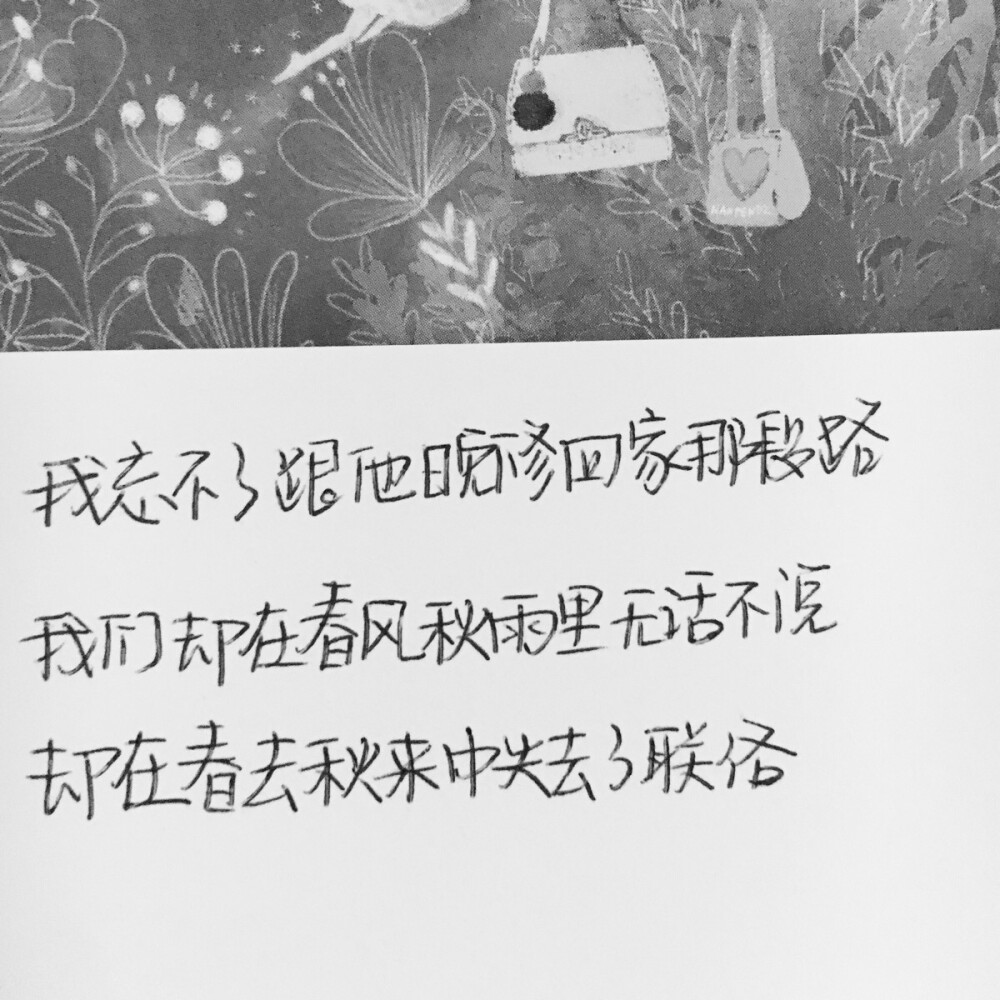 我忘不了跟他晚修回家那段路
我们却在春风秋雨里无话不说
却在春去秋来中失去了联俗